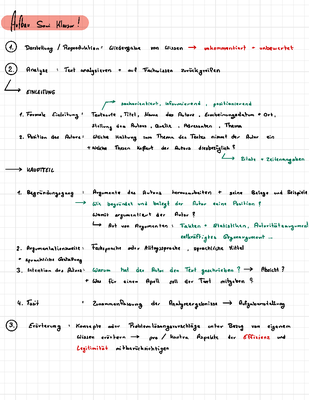 Aufbau Sowi Klausur!
1. Darstellung / Reproduktion: Wiedergabe von Wissen → unkommentiert + unbewertet
2. Analyse: Text analysieren + auf Fachwissen zurückgreifen
EINLEITUNG
→ sachorientiert, informierend, positionierend
1. Formale Einleitung: Textsorte, Titel, Name des Autors, Erscheinungsdatum + Ort,
Stellung des Autors, Quelle, Adressaten, Thema
2. Position des Autors: Welche Haltung zum Thema des Textes nimmt der Autor ein
+ Welche Thesen äußert der Autor diesbezüglich?
→ Zitate + Zeilenangaben
→ HAUPTTEIL
1. Begründungsgang: Argumente des Autors herausarbeiten + seine Belege und Beispiele
→ Wie begründet und belegt der Autor seine Position?
Womit argumentiert der Autor?
→ Art von Argumenten: Fakten + Statistiken, Autoritätsargument
2. Argumentationsweise: Fachsprache oder Alltagssprache, sprachliche Mittel
+ sprachliche Gestaltung
3. Intention des Autors: Warum hat der Autor den Text geschrieben? → Absicht?
+ Was für einen Apell soll der Text mitgeben?
4. Fazit: Zusammenfassung der Analyseergebnisse → Aufgabenstellung
3. Erörterung: Konzepte oder Problemlösungsvorschläge unter Bezug von eigenem
Wissen erörtern → pro / kontra Aspekte der Effizienz und
Legitimität mitberücksichtigen